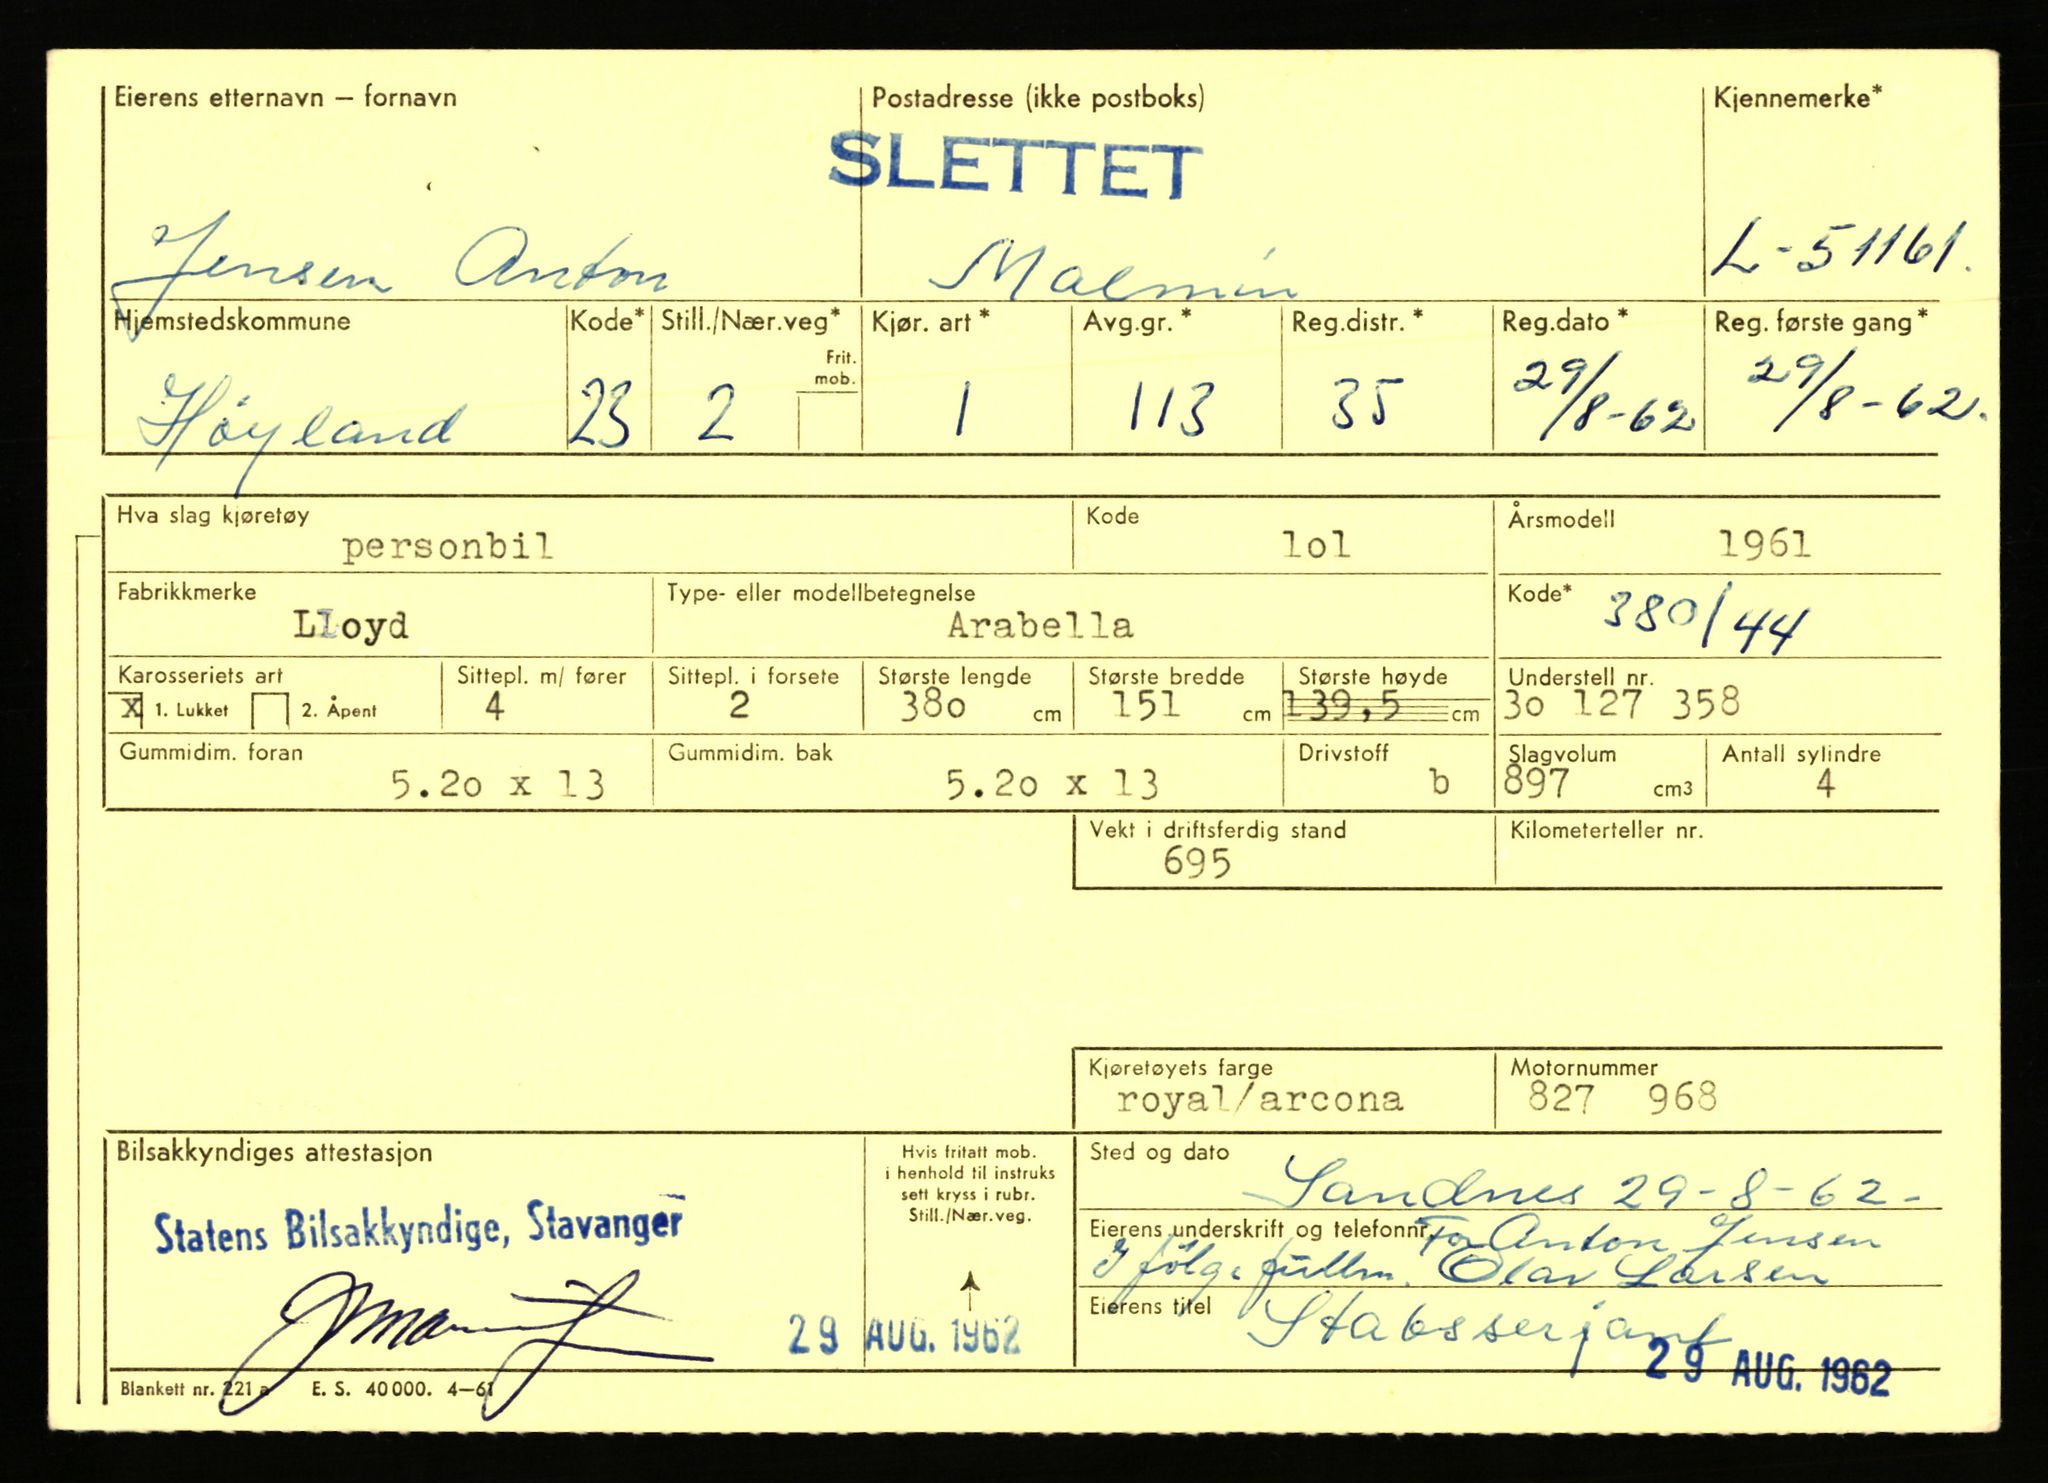 Eierens etternavn — fornavn Postadresse (ikke postboks) Kjennemerke*
SLETTET
Jensen Anton Malmin L-51161.
Hjemstedskommune Kode* Still./Nær.veg* Kjør. art* Avg.gr.* Reg.distr.* Reg.dato* Reg. første gang*
Frit. mob.
Høyland 23 2 1 113 35 29/8-62 29/8-62.
Hva slag kjøretøy Kode Årsmodell
personbil lol 1961
Fabrikkmerke Type- eller modellbetegnelse Kode*
Lloyd Arabella 380/44
Karosseriets art Sittepl. m/ fører Sittepl. i forsete Største lengde Største bredde Største høyde Understell nr.
X 1. Lukket 2. Åpent 4 2 38o cm 151 cm 139,5 cm 3o 127 358
Gummidim. foran Gummidim. bak Drivstoff Slagvolum Antall sylindre
5.2o x 13 5.2o x 13 b 897 cm3 4
Vekt i driftsferdig stand Kilometerteller nr.
695
Kjøretøyets farge Motornummer
royal/arcona 827 968
Bilsakkyndiges attestasjon Hvis fritatt mob. Sted og dato
i henhold til instruks
sett kryss i rubr.
Still./Nær.veg.
Sandnes 29-8-62-
Statens Bilsakkyndige, Stavanger
Eierens underskrift og telefonnr. For Anton Jensen
I følge fullm. Olav Larsen
Eierens titel Stabsserjant
29 AUG. 1962
29 AUG. 1962
Blankett nr. 221 a E. S. 40 000. 4—61